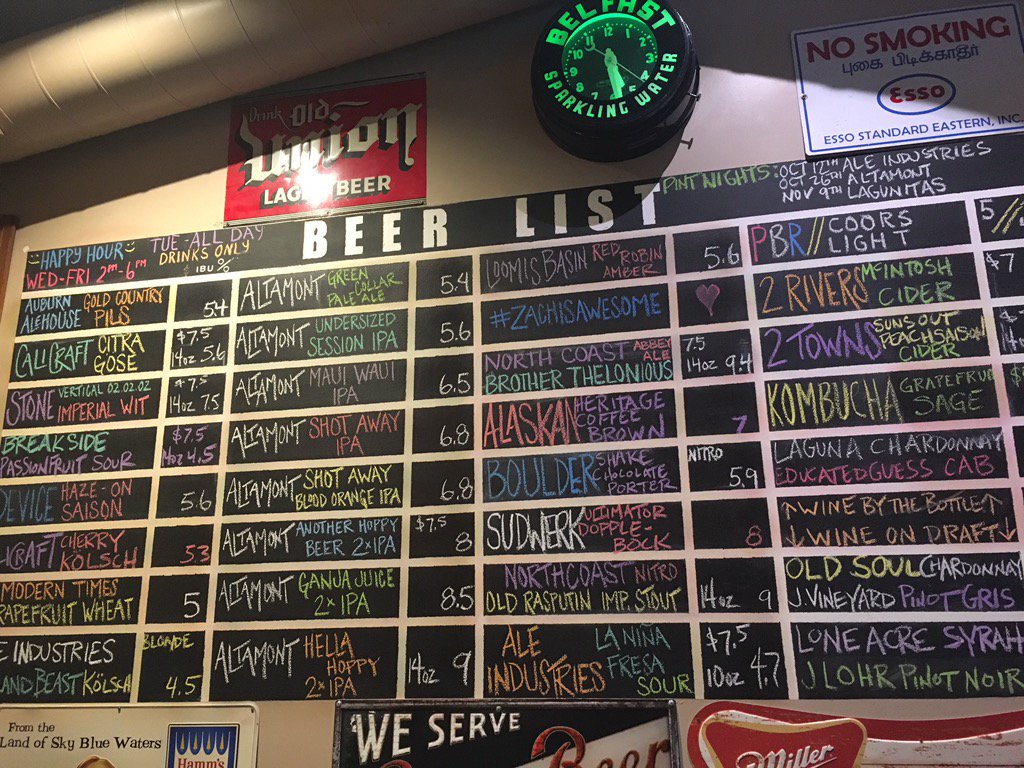 BELFAST
SPARKLING WATER
NO SMOKING
புகை பிடிக்காதீர்
Esso
ESSO STANDARD EASTERN, INC.
Drink Old
Union
LAGER BEER
BEER LIST
PINT NIGHTS: OCT 12TH ALE INDUSTRIES
OCT 26TH ALTAMONT
NOV 9TH LAGUNITAS
HAPPY HOUR
WED-FRI 2PM-6PM
TUE ALL DAY
DRINKS ONLY
IBU %
AUBURN ALEHOUSE GOLD COUNTRY PILS 5.4
CALICRAFT CITRA GOSE $7.5 14oz 5.6
STONE VERTICAL 02.02.02 IMPERIAL WIT $7.5 14oz 7.5
BREAKSIDE PASSIONFRUIT SOUR $7.5 14oz 4.5
DEVICE HAZE-ON SAISON 5.6
CRAFT CHERRY KÖLSCH 5.3
MODERN TIMES
GRAPEFRUIT WHEAT 5
E INDUSTRIES BLONDE
AND BEAST KÖLSCH 4.5
ALTAMONT GREEN COLLAR PALE ALE 5.4
ALTAMONT UNDERSIZED SESSION IPA 5.6
ALTAMONT MAUI WAUI IPA 6.5
ALTAMONT SHOT AWAY IPA 6.8
ALTAMONT SHOT AWAY BLOOD ORANGE IPA 6.8
ALTAMONT ANOTHER HOPPY BEER 2xIPA $7.5 8
ALTAMONT GANJA JUICE 2x IPA 8.5
ALTAMONT HELLA HOPPY 2xIPA 14oz 9
LOOMIS BASIN RED ROBIN AMBER 5.6
#ZACHISAWESOME
NORTH COAST ABBEY ALE
BROTHER THELONIOUS 7.5 14oz 9.4
ALASKAN HERITAGE COFFEE BROWN 7
BOULDER SHAKE CHOCOLATE PORTER NITRO 5.9
SUDWERK ULTIMATOR DOPPLE-BOCK 8
NORTHCOAST NITRO
OLD RASPUTIN IMP. STOUT 14oz 9
ALE INDUSTRIES LA NIÑA FRESA SOUR $7.5 10oz 4.7
PBR// COORS LIGHT 5//
2 RIVERS McINTOSH CIDER $7
2 TOWNS SUNS OUT PEACH SAISON CIDER
KOMBUCHA GRAPEFRUIT SAGE
LAGUNA CHARDONNAY
EDUCATED GUESS CAB
↑WINE BY THE BOTTLE↑
↓WINE ON DRAFT↓
OLD SOUL CHARDONNAY
J. VINEYARD PINOT GRIS
LONE ACRE SYRAH
J LOHR PINOT NOIR
From the
Land of Sky Blue Waters
Hamm's
WE SERVE
Beer
Miller